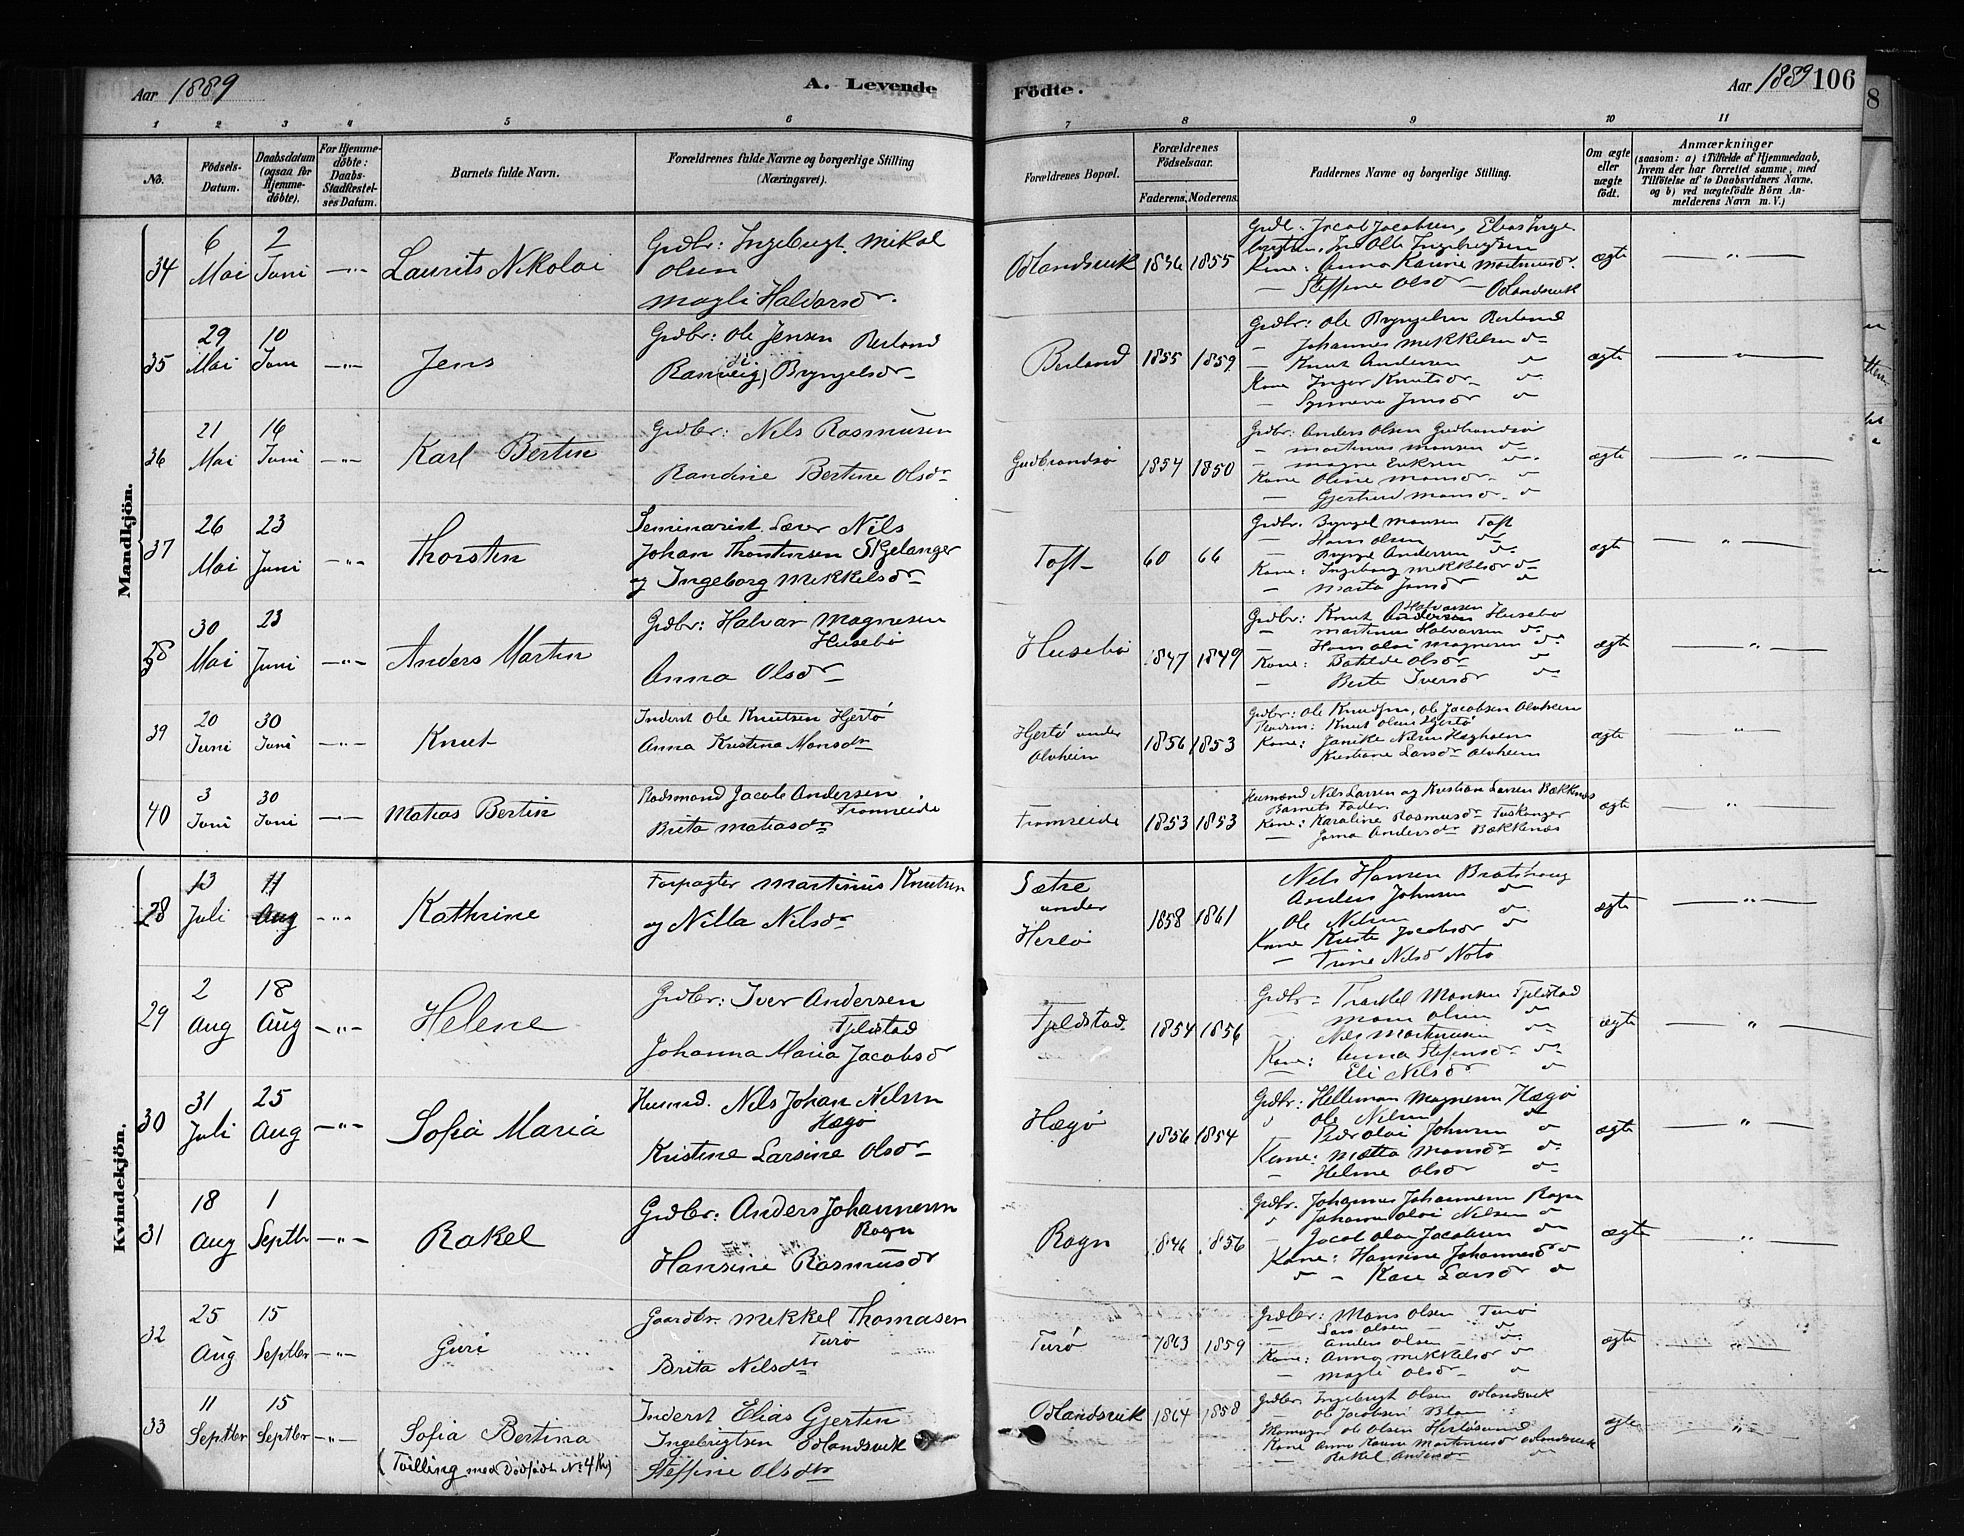 Aar 1889
A. Levende
Födte.
Aar 1889 106
1 2 3 4 5 6 7 8 9 10 11
No.
Födsels-Datum.
Daabsdatum (ogsaa for Hjemme-döbte).
For Hjemme-döbte: Daabs-Stadfæstel-ses Datum.
Barnets fulde Navn.
Forældrenes fulde Navne og borgerlige Stilling (Næringsvei).
Forældrenes Bopæl.
Forældrenes Födselsaar.
Faderens. Moderens.
Faddernes Navne og borgerlige Stilling.
Om ægte eller uægte født.
Anmærkninger
(saasom: a) i Tilfælde af Hjemmedaab, hvem der har forrettet samme, med Tilföielse af to Daabsvidners Navne, og b) ved uægtefödte Börn An-melderens Navn m. V.)
Mandkjön.
34 6 Mai 2 Juni -"- Laurits Nikolai
Grdbr: Ingebrigt Mikal
Olsen
Magli Halvorsdr.
Odlandsvik 1836 1855
Grdb: Jacob Jacobsen, Elias Inge
brigtsen, Ole Ingebrigtsen
Kone: Anna Karine Martinusdr.
— Steffine Olsdr — Odlandsvik
ægte — " —
35 29 Mai 10 Juni -"- Jens
Grdbr: Ole Jensen Berland
Ranveig (di) Bryngelsdr
Berland 1855 1859
Grdbr: Ole Bryngelsen Berland
— Johannes Mikkelsen do
— Knut Andersen do
Kone Inger Knutsdr do
— Synneva Jensdr do
ægte — " —
36 21 Mai 16 Juni -"- Karl Bertin
Grdbr: Nils Rasmusen
Randine Bertine Olsdr
Gudbrandsö 1854 1850
Grdbr: Anders Olsen Gudbrandsö
— Martinus Monsen do
— Magne Eriksen do
Kone Oline Monsdr do
— Gjertrud Monsdr do
ægte — " —
37 26 Mai 23 Juni -"- Thorsten
Seminarist Lærer Nils
Johan Thorstensen Skjelanger
og Ingeborg Mikkelsdr
Toft 60 66
Grdbr. Bryngel Monsen Toft
— Hans Olsen do
— Andersen do
Kone: Ingeborg Mikkelsdr do
— Marta Jensdr do
ægte — " —
38 30 Mai 23 Juni -"- Anders Martin
Grdbr: Halvar Magnesen
Husebö
Anna Olsdr
Husebö 1847 1849
Grdbr: Knut Andersen Halvarsen Husebö
— Martinus Halvarsen do
— Hans Olai Magnesen do
Kone: Botilde Olsdr do
— Berte Iversdr do
ægte — " —
39 20 Juni 30 Juni -"- Knut
Inderst Ole Knutsen Hjertö
Anna Kristina Monsdr
Hjertö under Alvheim 1856 1853
Grdbr: Ole Knudsen, Ole Jacobsen Alvheim
Knut Olsen Hjertö
Kone: Janike Nilsen
Kristiane Larsdr Alvheim
ægte — " —
40 3 Juni 30 Juni -"- Matias Bertin
Pladsmand Jacob Andersen
Fromreide
Brita Matiasdr
Fromreide 1853 1853
Husmænd Nils Larsen og Kristian Larsen Bækknes
Barnets Fader.
Kone: Karoline Rasmusdr
Andersdr Bækknes
ægte "
Kvindekjön.
28 13 Juli 11 Aug -"- Kathrine
Forpagter Martinus Knutsen
og Nilla Nilsdr
Sætre under Herlö 1858 1861
Nels Hansen
Anders Johnsen do
Ole Nilsen do
Kone Jacobsdr do
— Trine Nilsd
ægte — " —
29 2 Aug 18 Aug -"- Helene
Grdbr: Iver Andersen
Fjeldstad
Johanna Maria Jacobsd
Fjeldstad 1854 1856
Grdbr — Monsen Fjeldstad
— Mons Olsen do
Nils Martinusen do
Kone: Anna do
Eli Nilsd do
ægte — " —
30 31 Juli 25 Aug -"- Sofia Maria
Husmd. Nils Johan Nilsen
Hægö
Kristine Larsine Olsdr
Hægö 1856 1854
Grdbr: Helleman Magnesen Hægö
Ole Nilsen do
Peder Olai Johnsen do
Kone: Mætta Monsdr do
— Helene Olsdr do
ægte — " —
31 18 Aug 1 Septbr -"- Rakel
Grdbr: Anders Johannesen
Rogn
Hansine Rasmusdr
Rogn 1846 1856
Grdbr. Johannes Johannesen Rogn
Johannes Olai Nilsen do
Jacob Olai Jacobsen do
Kone: Hansine Johannesdr do
do — Kari Larsdr do
ægte — " —
32 25 Aug 15 Septbr -"- Guri
Gaardbr. Mekkel Thomasen
Turö
Brita Nilsdtr
Turö 1863 1859
Grdbr: Mons Olsen Turö
— Lars Olsen do
— Anders Olsen do
Kone: Anna Mikkelsdr do
— Magli Olsdr do
ægte "
33 11 Septbr 15 Septbr -"- Sofia Bertina
(Tvilling med Dödfødt No 4 Kv)
Inderst Elias Gjertin
Ingebrigtsen Odlandsvik
Steffine Olsdtr
Odlandsvik 1864 1858
Grdbr. Ingebrigt Olsen Odlandsvik
— Ole Jacobsen
Ole Olsen Herlösund
Kone Anna Karine Martinusdr Odlandsvik
— Rakel Andersdr do
ægte "